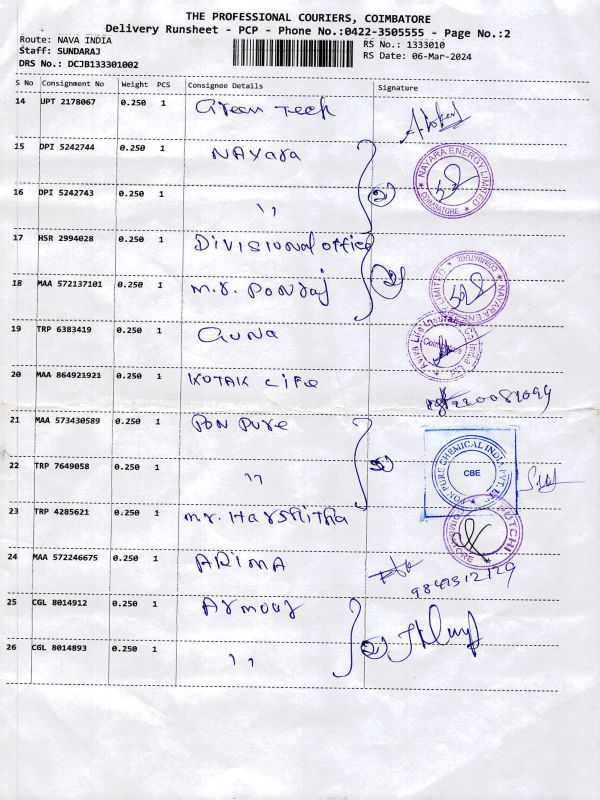 THE PROFESSIONAL COURIERS, COIMBATORE
Delivery Runsheet - PCP - Phone No.:0422-3505555 - Page No.:2
Route: NAVA INDIA
RS No.: 1333010
Staff: SUNDARAJ
RS Date: 06-Mar-2024
DRS No.: DCJB133301002
S No Consignment No Weight PCS Consignee Details Signature
14 UPT 2178067 0.250 1 Green Tech
15 DPI 5242744 0.250 1 NAYara
NAYARA ENERGY LIMITED
COIMBATORE
16 DPI 5242743 0.250 1 ,,
17 HSR 2994028 0.250 1 Divisional office
18 MAA 572137101 0.250 1 m.r. Ponraj
NAYARA ENERGY LIMITED
COIMBATORE
19 TRP 6383419 0.250 1 GUNA
20 MAA 864921921 0.250 1 KOTAK Life
21 MAA 573430589 0.250 1 Pon Pure
PON PURE CHEMICAL INDIA PVT LTD
CBE
22 TRP 7649058 0.250 1 ,,
23 TRP 4285621 0.250 1 mr. Harshitha
24 MAA 572246675 0.250 1 ARIMA
9842512129
25 CGL 8014912 0.250 1 Armour
26 CGL 8014893 0.250 1 ,,